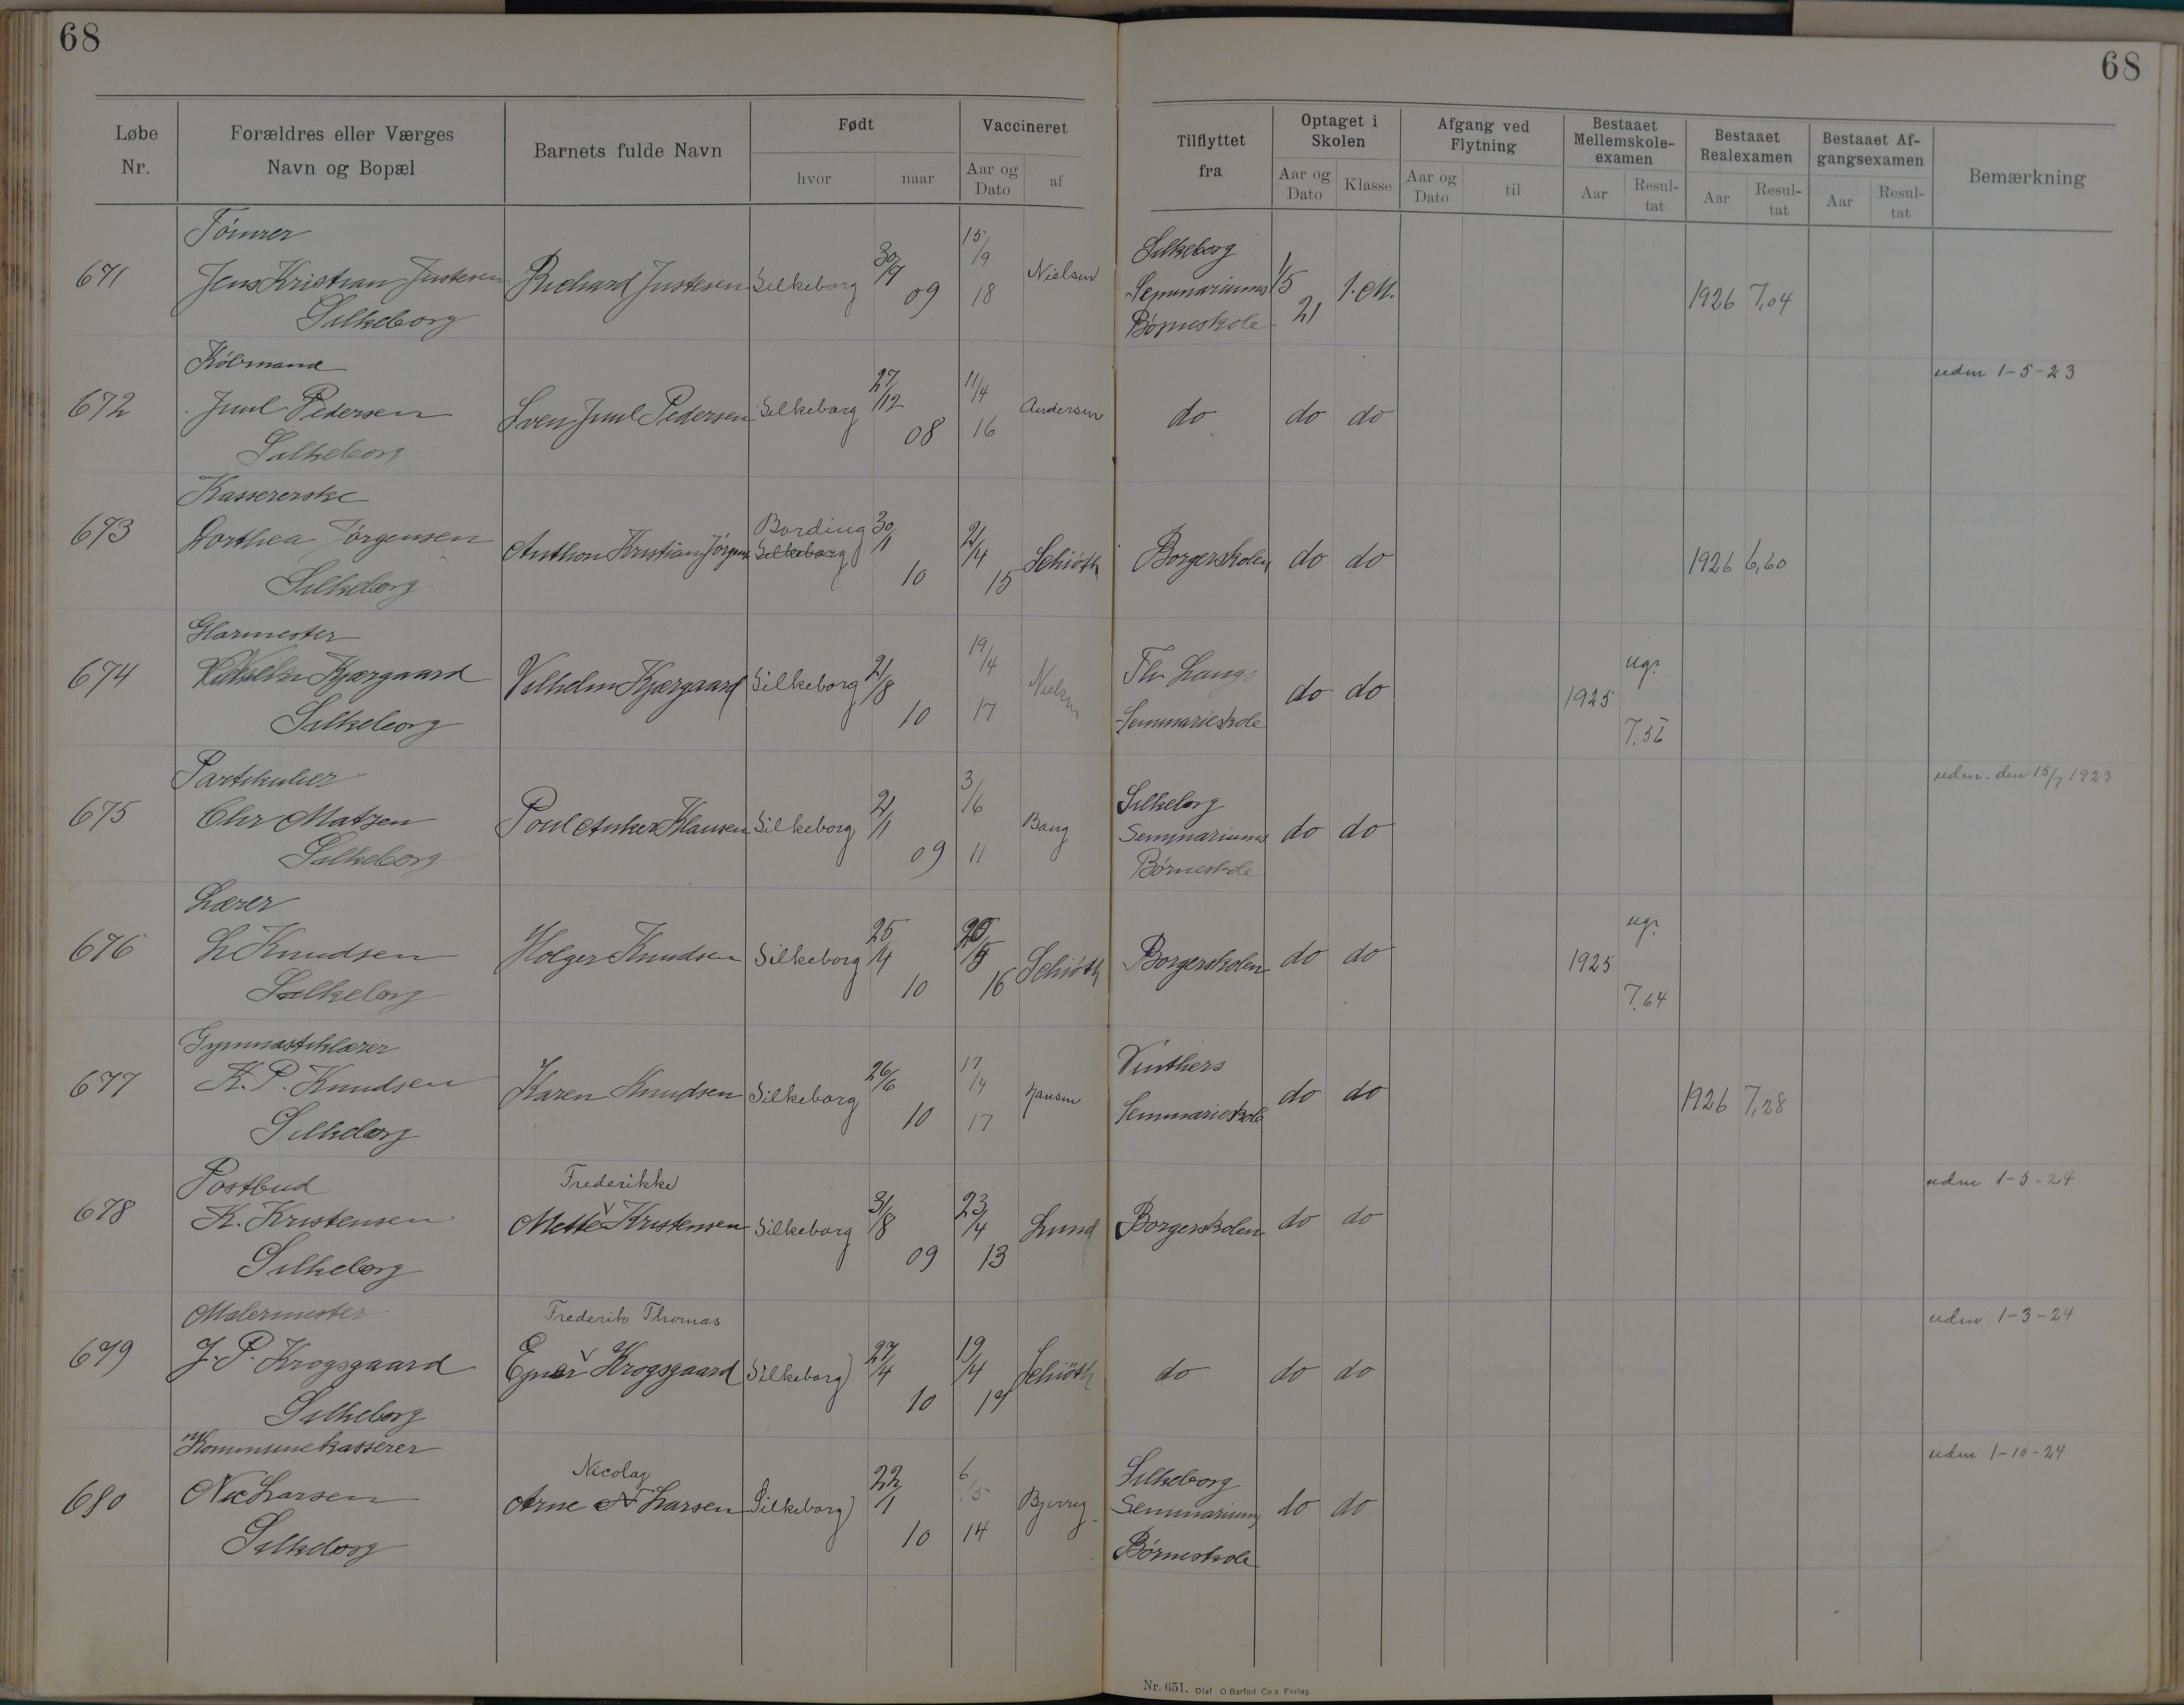 68
68
Løbe Nr.
Forældres eller Værges Navn og Bopæl
Barnets fulde Navn
Født
hvor
naar
Vaccineret
Aar og Dato
af
Tilflyttet fra
Optaget i Skolen
Aar og Dato
Klasse
Afgang ved Flytning
Aar og Dato
til
Bestaaet Mellemskole-examen
Aar
Resul-tat
Bestaaet Realexamen
Aar
Resul-tat
Bestaaet Af-gangsexamen
Aar
Resul-tat
Bemærkning
Tömrer
671 Jens Kristian Justesen Richard Justesen Silkeborg 30/9 09 15/9 18 Nielsen Silkeborg Seminariums Börneskole 1/5 21 1. M. 1926 7,04
Silkeborg
Köbmand
672 Juul Pedersen Sven Juul Pedersen Silkeborg 27/12 08 11/4 16 Andersen do do do udm 1-5-23
Silkeborg
Kassererske
673 Dorthea Jörgensen Anthon Kristian Jörgens Bording Silkeborg 30/1 10 21/4 15 Schiöth Borgerskolen do do 1926 6,60
Silkeborg
Glarmester
674 Kjærgaard Vilhelm Kjærgaard Silkeborg 21/8 10 19/4 17 Nielsen Th Langs Seminarieskole do do 1925 ug?
Silkeborg
Partikulier
675 Chr Matzen Poul Anker Klausen Silkeborg 21/1 09 3/6 11 Bang Silkeborg Seminariums Börneskole do do udm. den 15/7 1923
Silkeborg
Lærer
676 L Knudsen Holger Knudsen Silkeborg 25/4 10 16 Schiöth Borgerskolen do do 1925 ug? 7,64
Silkeborg
Gymnastiklærer
677 K. P. Knudsen Karen Knudsen Silkeborg 26/6 10 17/4 17 Jansen Vinthers Seminarieskole do do 1926 7,28
Silkeborg
Postbud
678 K. Kristensen Mette Frederikke Kristensen Silkeborg 31/8 09 23/4 13 Lund Borgerskolen do do udm 1-5-24
Silkeborg
Malermester
679 J. P. Krogsgaard Egner Frederik Thomas Krogsgaard Silkeborg 27/4 10 19/4 17 Schiöth do do do udm 1-3-24
Silkeborg
Kommunekasserer
680 Nic Larsen Arne Nicolaj N Larsen Silkeborg 22/1 10 6/5 14 Bjerreg Silkeborg Seminariums Börneskole do do udm 1-10-24
Silkeborg
Nr. 651. Olaf O Barfod Co.s Forlag.